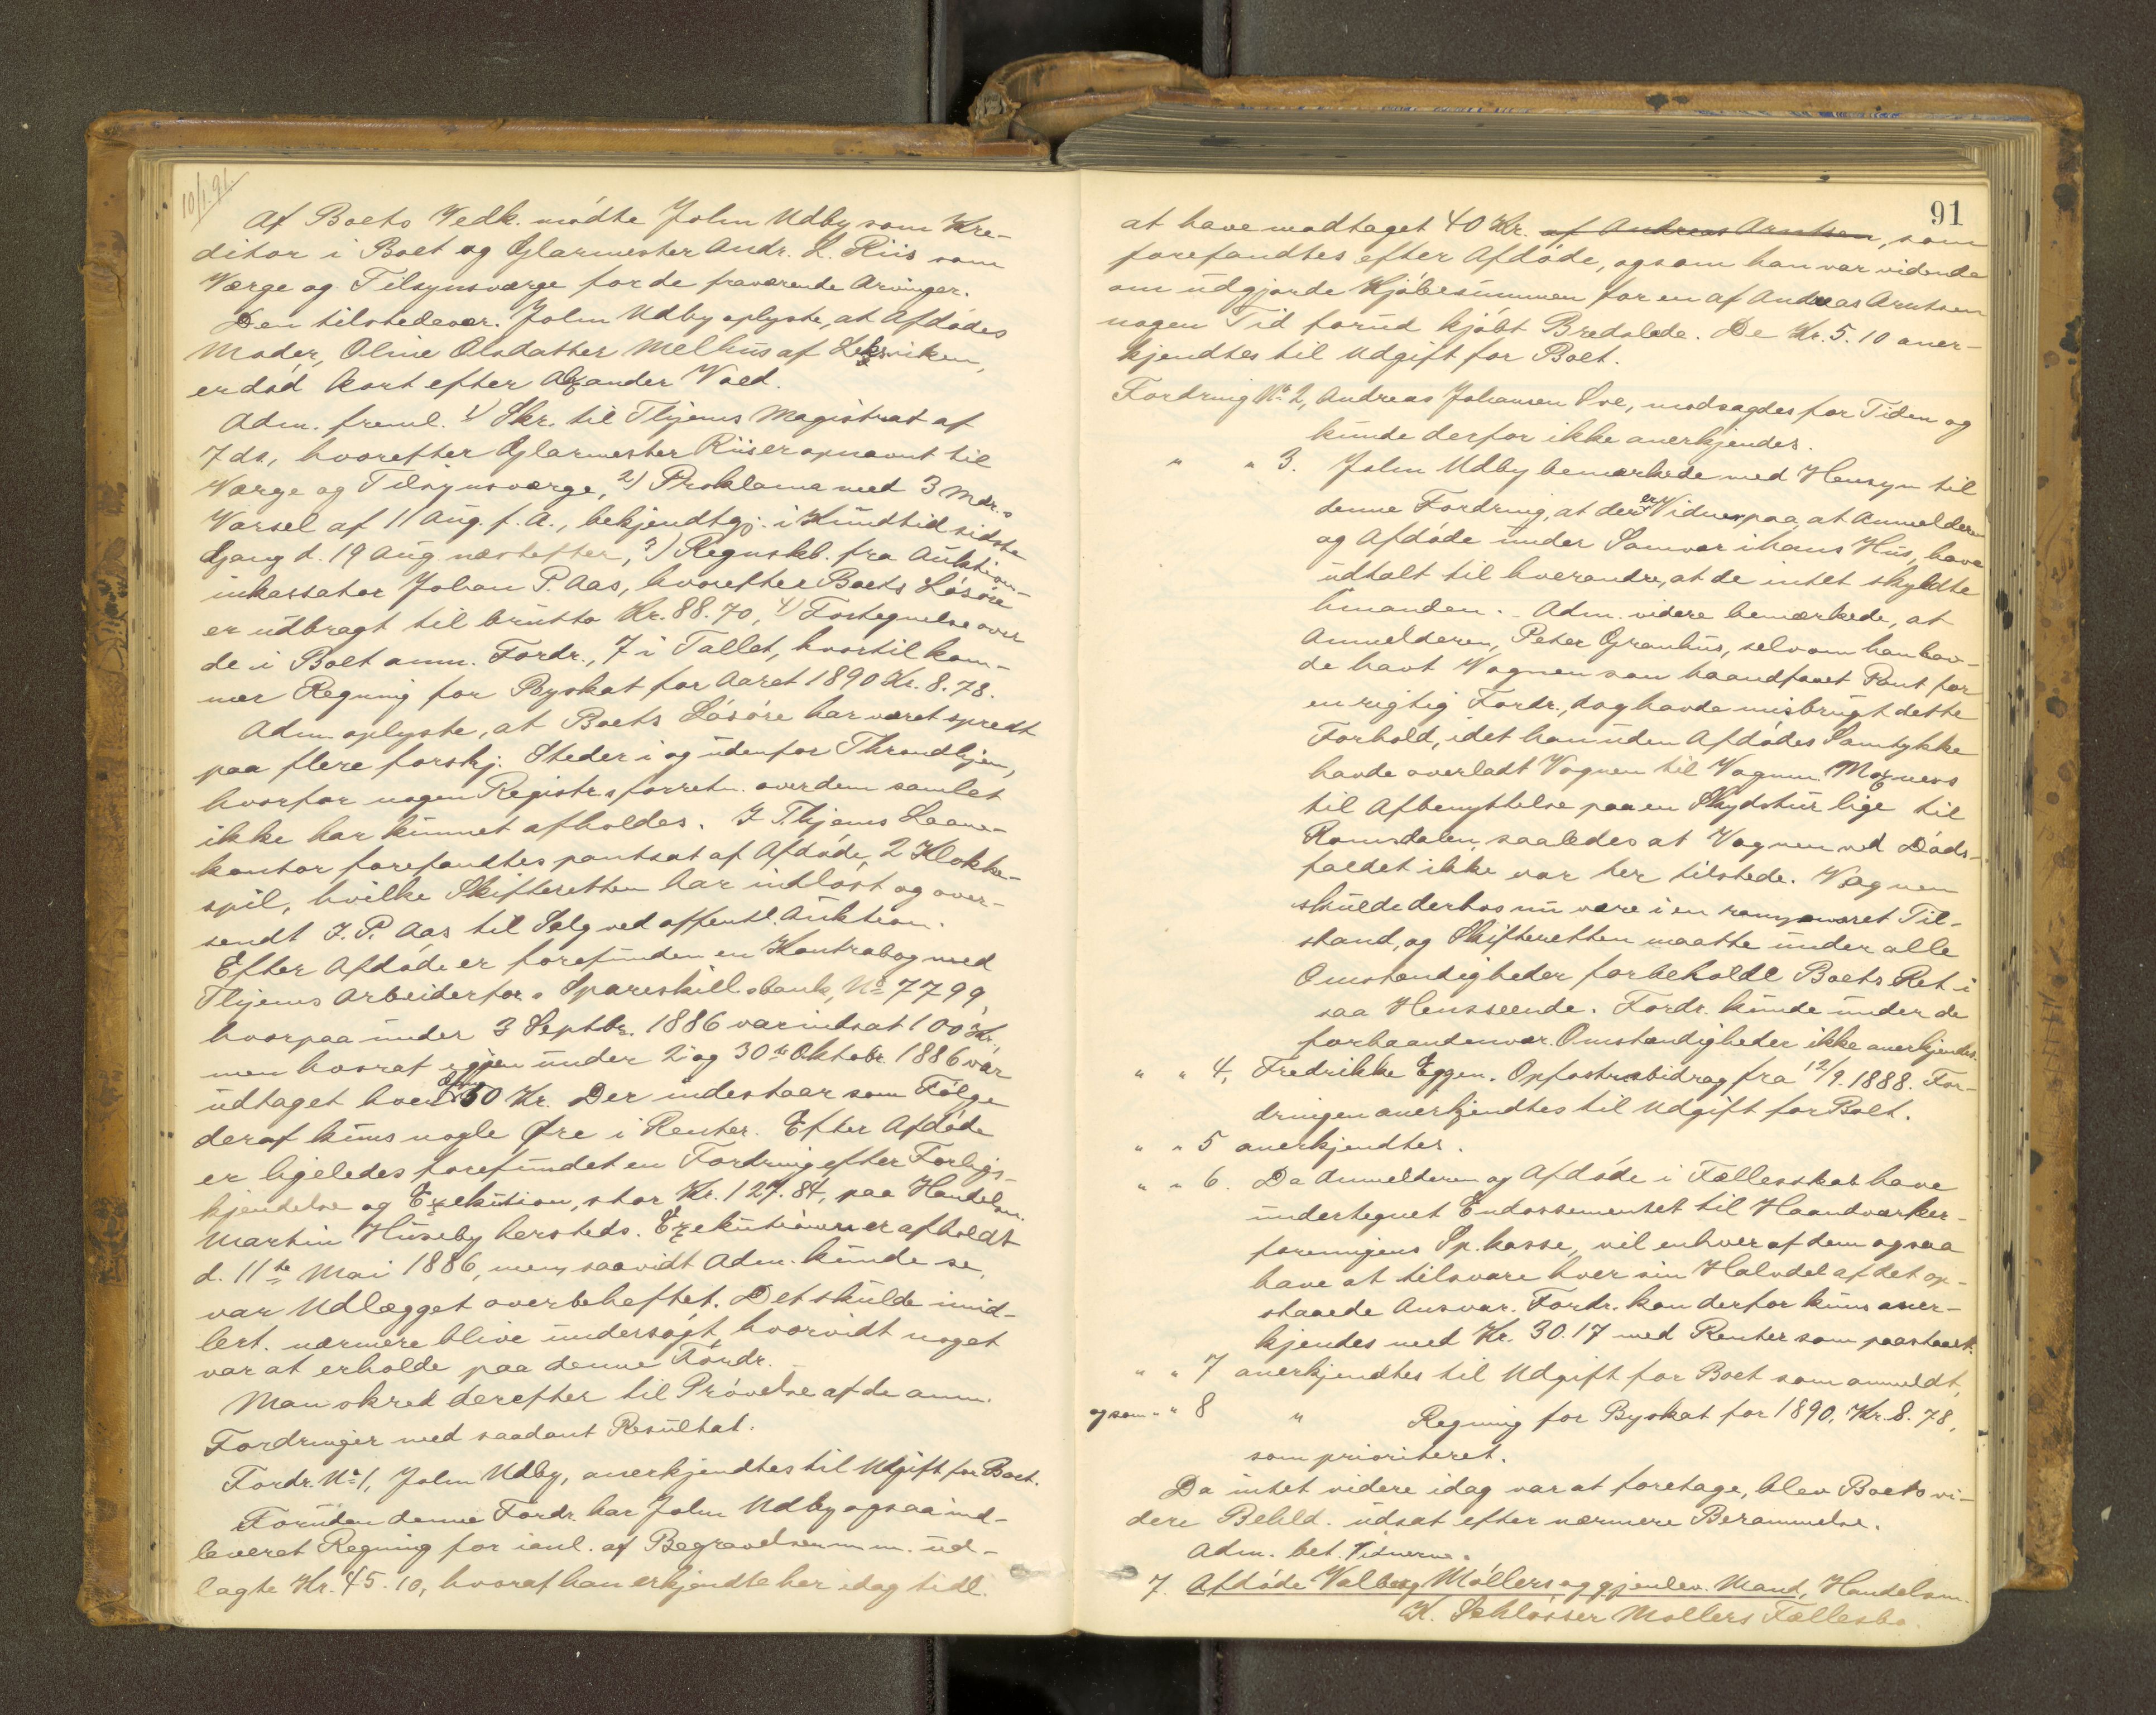 10/1.91.
Af Boets Vedk. mødte John Udby som Kre-
ditor i Boet og Glarmester Andr. L. Riis som
Værge og Tilsynsværge for de fraværende Arvinger.
Den tilstedevær. John Udby oplyste, at Afdødes
Moder, Oline Olsdatter Melhus af Leksviken,
er død kort efter Alexander Vold.
Adm. freml. 1) Skr. til Thjems Magistrat af
7 ds., hvorefter Glarmester Riis er opnævnt til
Værge og Tilsynsværge, 2) Proklama med 3 Mdr.s
Varsel af 11 Aug. f. A., bekjendtgj. i Kundtid sidste
Gang d. 19 Aug næstefter, 3) Regnskb. fra Auktions-
inkassator Johan P. Aas, hvorefter Boets Løsøre
er udbragt til brutto Kr. 88.70, 4) Fortegnelse over
de i Boet anm. Fordr., 7 i Tallet, hvortil kom-
mer Regning for Byskat for Aaret 1890 Kr. 8.78.
Adm. oplyste, at Boets Løsøre har været spredt
paa flere forskj. Steder i og udenfor Throndhjem,
hvorfor nogen Registr.s forretn. over dem samlet
ikke har kunnet afholdes. I Thjems Laane-
kontor forefandtes pantsat af Afdøde 2 Klokke-
spil, hvilke Skifteretten har indløst og over-
sendt J. P. Aas til Salg ved offentl. Auktion.
Efter Afdøde er forefunden en Kontrabog med
Thjems Arbeiderfor.s Spareskill.sbank, No 7799,
hvorpaa under 3 Septbr. 1886 var indsat 100 Kr.,
men hvoraf igjen under 2 og 30te Oktobr. 1886 var
udtaget hver Gang 50 Kr. Der indestaar som Følge
deraf kuns nogle Øre i Renter. Efter Afdøde
er ligeledes forefundet en Fordring efter Forligs-
kjendelse og Exekution, stor Kr. 127.84, paa Handelsm.
Martin Huseby hersteds. Exekutionen er afholdt
d. 11te Mai 1886, men, saavidt Adm. kunde se,
var Udlægget overbeheftet. Det skulde imid-
lert. nærmere blive undersøgt, hvorvidt noget
var at erholde paa denne Fordr.
Man skred derefter til Prøvelse af de anm.
Fordringer med saadant Resultat.
Fordr. No 1, John Udby, anerkjendtes til Udgift for Boet.
Foruden denne Fordr. har John Udby ogsaa ind-
leveret Regning for ianl. af Begravelsen m.m. ud-
lagte Kr. 45.10, hvoraf han erkjendte her idag tidl.
91
at have modtaget 40 Kr. af Andreas Arntsen, som
forefandtes efter Afdøde, og som han var vidende
om udgjorde Kjøbesummen for en af Andreas Arntsen
nogen Tid forud kjøbt Bredslede. De Kr. 5.10 aner-
kjendtes til Udgift for Boet.
Fordring No 2, Andreas Johansen Sve, modsagdes for Tiden og
kunde derfor ikke anerkjendes.
" " 3. John Udby bemærkede med Hensyn til
denne Fordring, at der er Vidner paa, at Anmelderen
og Afdøde under Samvær i hans Hus, have
udtalt til hverandre, at de intet skyldte
hinanden. - Adm. videre bemærkede, at
Anmelderen, Peter Granhus, selv om han hav-
de havt Vognen som haandfaaet Pant for
en rigtig Fordr., dog havde misbrugt dette
Forhold, idet han uden Afdødes Samtykke
havde overladt Vognen til Vognm. Moxness
til Afbenyttelse paa en Skydstur lige til
Romsdalen, saaledes at Vognen ved Døds-
faldet ikke var her tilstede. Vognen
skulde derhos nu være i en ramponeret Til-
stand, og Skifteretten maatte under alle
Omstændigheder forbeholde Boets Ret i
saa Henseende. Fordr. kunde under de
forhaandenvær. Omstændigheder ikke anerkjendes.
" " 4, Fredrikke Eggen. Opfostr.sbidrag fra 12/9. 1888. For-
dringen anerkjendtes til Udgift for Boet.
" " 5 anerkjendtes.
" " 6. Da Anmelderen og Afdøde i Fællesskab have
undertegnet Endossementet til Haandværker-
foreningens Sp.kasse, vil enhver af dem ogsaa
have at tilsvare hver sin Halvdel af det op-
staaede Ansvar. Fordr. kan derfor kuns aner-
kjendes med Kr. 30.17 med Renter som paastaaet.
" " 7 anerkjendtes til Udgift for Boet som anmeldt,
og som " " 8 " Regning for Byskat for 1890, Kr. 8.78,
som prioriteret.
Da intet videre idag var at foretage, blev Boets vi-
dere Behld. udsat efter nærmere Berammelse.
Adm. bet. Vidnerne.
7. Afdøde Valborg Møllers og gjenlev. Mand, Handelsm.
K. Schløsser Møllers Fællesbo.